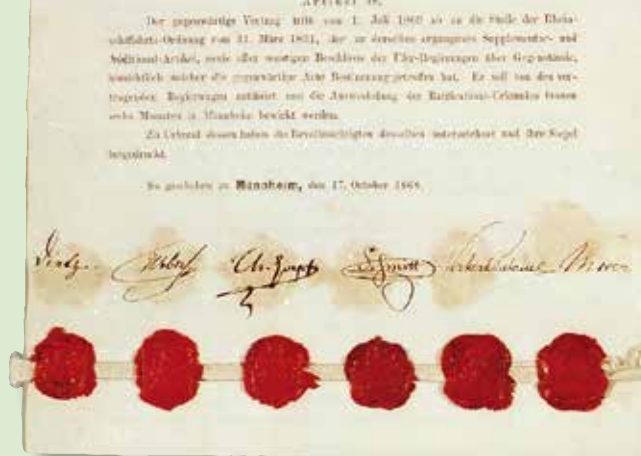 Artikel 48.
Der gegenwärtige Vertrag tritt vom 1. Juli 1869 ab an die Stelle der Rhein-
schifffahrts-Ordnung vom 31. März 1831, der zu derselben ergangenen Supplementar- und
Additional-Artikel, sowie aller sonstigen Beschlüsse der Ufer-Regierungen über Gegenstände,
hinsichtlich welcher die gegenwärtige Acte Bestimmung getroffen hat. Er soll von den ver-
tragenden Regierungen ratificirt und die Auswechslung der Ratifications-Urkunden binnen
sechs Monaten in Mannheim bewirkt werden.
Zu Urkund dessen haben die Bevollmächtigten denselben unterzeichnet und ihre Siegel
beigedruckt.
So geschehen zu Mannheim, den 17. October 1868.
Dietz Weber Schmitt